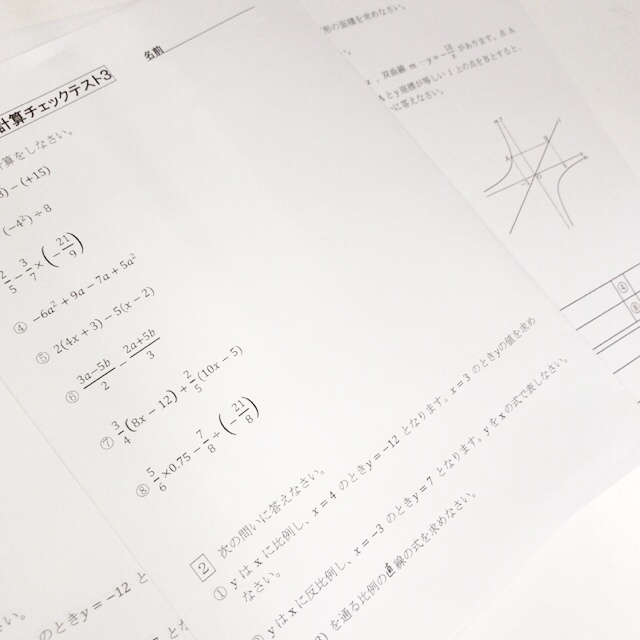 名前
計算チェックテスト3
計算をしなさい。
) − (+15)
(−4²) ÷ 8
2/5 − 3/7 × (−21/9)
④ −6a² + 9a − 7a + 5a²
⑤ 2(4x + 3) − 5(x − 2)
⑥ 3a−5b/2 − 2a+5b/3
⑦ 3/4(8x − 12) + 2/5(10x − 5)
⑧ 5/6 × 0.75 − 7/8 ÷ (−21/8)
2 次の問いに答えなさい。
① y は x に比例し、x = 4 のとき y = −12 となります。x = 3 のときyの値を求め
なさい。
yはxに反比例し、x = −3 のときy = 7 となります。yをxの式で表しなさい。
) を通る比例の直線の式を求めなさい。
のときy = −12 と
い。
形の面積を求めなさい。
、双曲線
があります。点A
と y 座標が等しい l 上の点を B とすると、
に答えなさい。
④
⑧